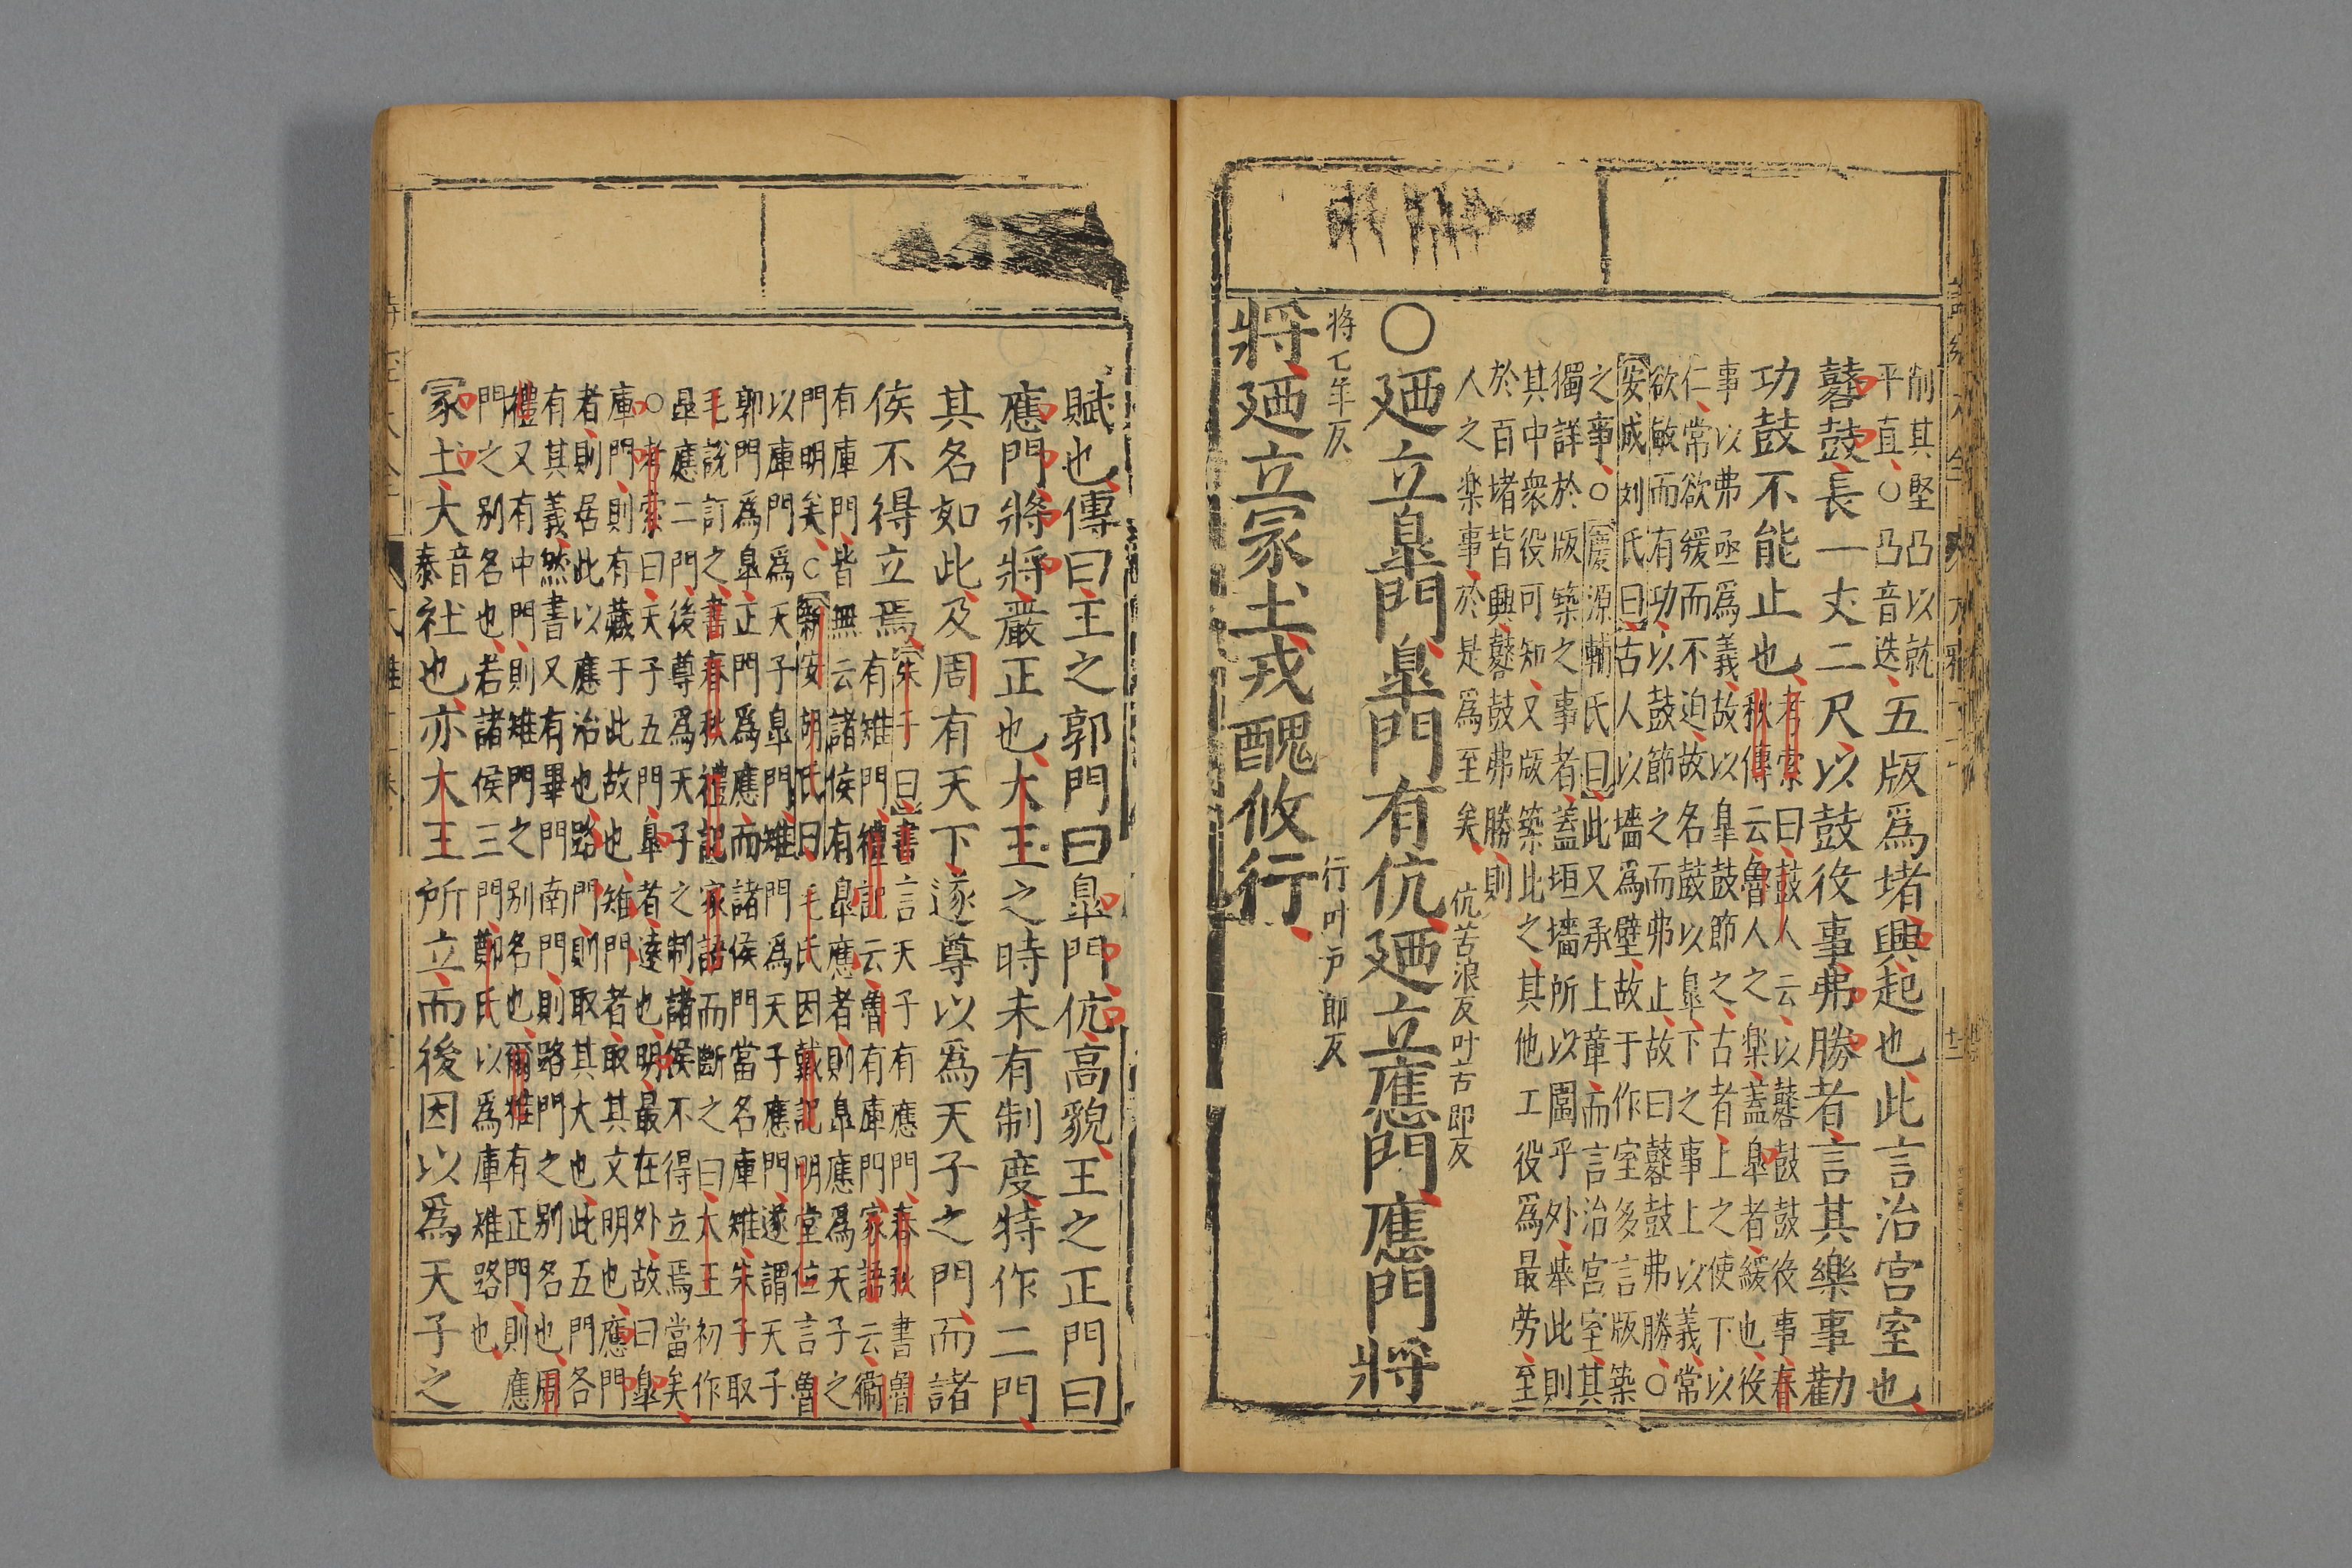 削其堅凸以就
平直○凸音迭
五版爲堵興起也此言治宮室也
鼛鼓長一丈二尺以鼓役事弗勝者言其樂事勸
功鼓不能止也
考索曰鼓人云以鼛鼓鼓役事春
秋傳云魯人之樂蓋皐者緩也役
事以弗亟爲義故以皐鼓節之古者上之使下以
仁常欲緩而不迫故名鼛以皐下之事上以義常
欲敏而有功以鼓節之而弗止故曰鼛鼓弗勝○
安成刘氏曰古人以墻爲壁故于作室多言版築
之事○慶源輔氏曰此又承上章而言治宮室其
獨詳於版築之事者蓋垣墻所以圖乎外舉此則
其中衆役可知又版築此之其他工役爲最勞至
於百堵皆興鼛鼓弗勝則
人之楽事於是爲至矣
○廼立皐門皐門有伉
伉苦浪反叶古郎反
廼立應門應門將
將七羊反
將廼立冢土戎醜攸行
行叶戶郎反
賦也傳曰王之郭門曰皐門伉高貌王之正門曰
應門將將嚴正也大王之時未有制度特作二門
其名如此及周有天下遂尊以爲天子之門而諸
侯不得立焉
朱子曰書言天子有應門春秋書魯
有雉門禮記云魯有庫門家語云衞
有庫門皆無云諸侯有皐應者則皐應爲天子之
門明矣○新安胡氏曰毛氏因戴記明堂位言魯
以庫門爲天子皐門雉門爲天子應門遂謂天子
郭門爲皐正門爲應而諸侯門當名庫雉朱子取
毛說訂之書春秋禮記家語而斷之曰大王初作
皐應二門後尊爲天子之制諸侯不得立焉當矣
○考索曰天子五門皐者遠也明最在外故曰皐
庫門則有藏于此故也雉門者取其文明也應門
者則居此以應治也路門則取其大也此五門各
有其義然書又有畢門南門則路門之別名也周
禮又有中門則雉門之別名也爾雅有正門則應
門之別名也若諸侯三門鄭氏以爲庫雉路也
冢土大音泰社也亦大王所立而後因以爲天子之